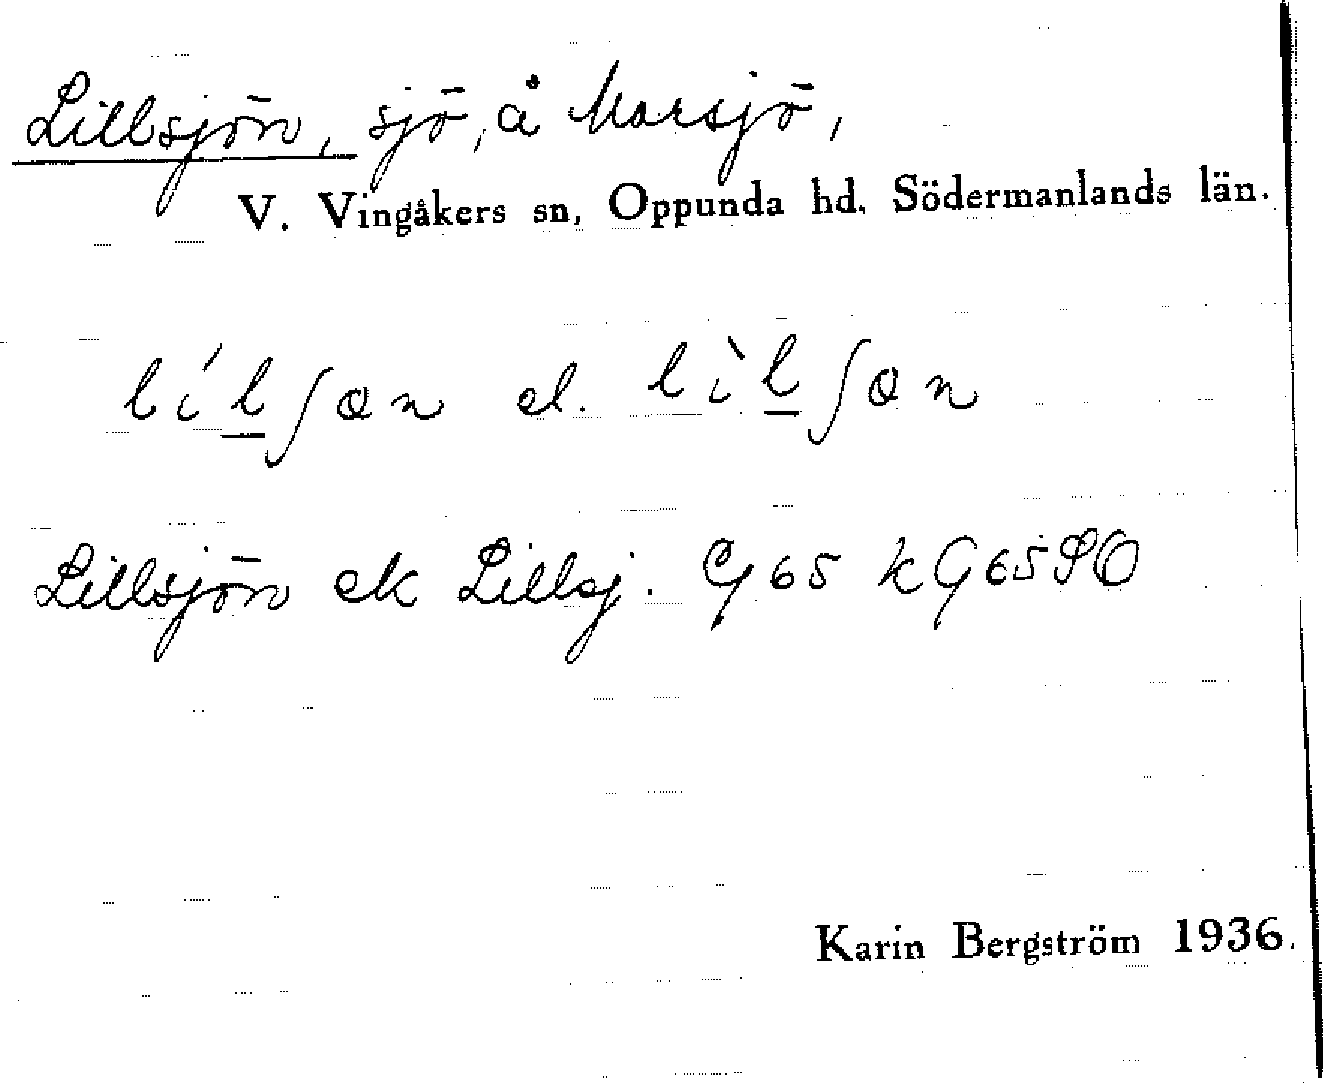 Lillsjön, sjö, å Marsjö,
V. Vingåkers sn, Oppunda hd. Södermanlands län.
lílʃɶn el. lìlʃɶn
Lillsjön ek Lillsj. G65 kG65SO
Karin Bergström 1936.